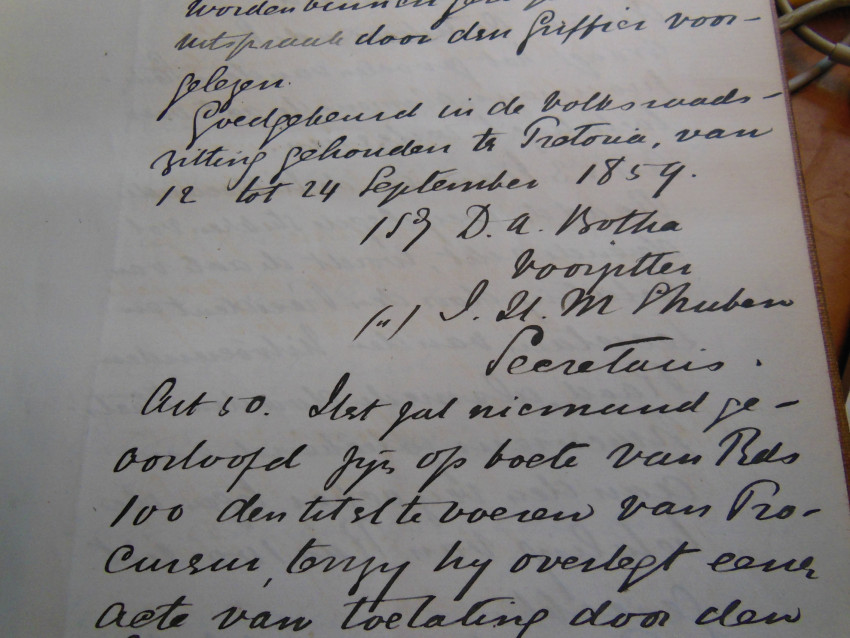 worden binnen
uitspraak door den Griffier voor-
gelezen.
Goedgekeurd in de Volksraads-
zitting gehouden te Pretoria, van
12 tot 24 September 1859.
D. A. Botha
Voorzitter
J. H. M Struben
Secretaris.
Art 50. Het zal niemand ge-
oorloofd zijn op boete van Rds
100 den titel te voeren van Pro-
cureur, tenzy hy overlegt eener
acte van toelating door den